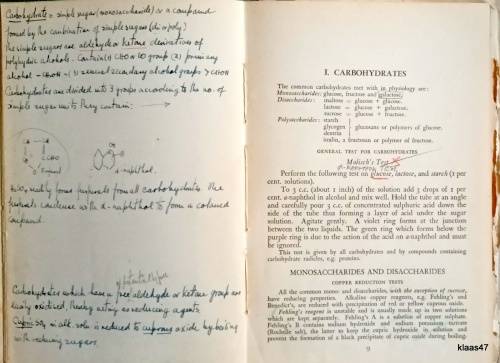 Carbohydrate = simple sugar (monosaccharide) or a compound
formed by the combination of simple sugars (di or poly)
The simple sugars are aldehyde or ketone derivatives of
polyhydric alcohols. Contain (1) CHO or CO group (2) primary
alcohol -CH2OH - (3) several secondary alcohol groups >CHOH
Carbohydrates are divided into 3 groups according to the no. of
simple sugar units they contain :—
CHO
α-naphthol.
H2SO4 mostly forms furfurals from all carbohydrates. The
furfurals condense with α-naphthol to form a coloured
compound.
Carbohydrates which have a free aldehyde or ketone group are
easily oxidised, thereby acting as reducing agents.
Cupric SO4 in alk. soln is reduced to cuprous oxide by heating
with reducing sugars.
I. CARBOHYDRATES
The common carbohydrates met with in physiology are:
Monosaccharides: glucose, fructose and galactose;
Disaccharides: maltose = glucose + glucose.
lactose = glucose + galactose.
sucrose = glucose + fructose.
Polysaccharides: starch
glycogen glucosans or polymers of glucose.
dextrin
inulin, a fructosan or polymer of fructose.
GENERAL TEST FOR CARBOHYDRATES
Molisch's Test
α-NAPHTHOL TEST
Perform the following test on glucose, lactose, and starch (1 per
cent. solutions).
To 5 c.c. (about 1 inch) of the solution add 3 drops of 1 per
cent. α-naphthol in alcohol and mix well. Hold the tube at an angle
and carefully pour 5 c.c. of concentrated sulphuric acid down the
side of the tube thus forming a layer of acid under the sugar
solution. Agitate gently. A violet ring forms at the junction
between the two liquids. The green ring which forms below the
purple ring is due to the action of the acid on α-naphthol and must
be ignored.
This test is given by all carbohydrates and by compounds containing
carbohydrate radicles, e.g. proteins.
MONOSACCHARIDES AND DISACCHARIDES
COPPER REDUCTION TESTS
All the common mono- and disaccharides, with the exception of sucrose,
have reducing properties. Alkaline copper reagents, e.g. Fehling's and
Benedict's, are reduced with precipitation of red or yellow cuprous oxide.
Fehling's reagent is unstable and is usually made up in two solutions
which are kept separately. Fehling's A is a solution of copper sulphate.
Fehling's B contains sodium hydroxide and sodium potassium tartrate
(Rochelle salt), the latter to keep the cupric hydroxide in solution and
prevent the formation of a black precipitate of cupric oxide during boiling.
klaas47